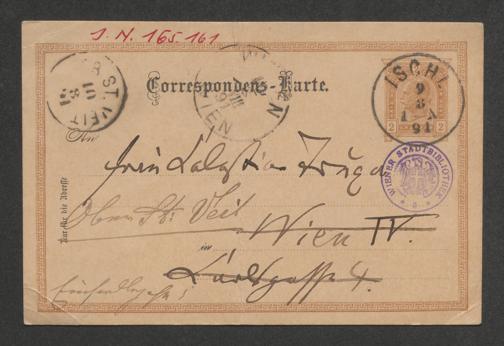 J. N. 165.161
ST. VEIT
10
8
91
WIEN
Correspondenz-Karte.
ISCHL
9
8
91
2 2
An
WIENER STADTBIBLIOTHEK
Nur für die Adresse
Ober St. Veit
Wien IV.
in
Karlsgasse 4.